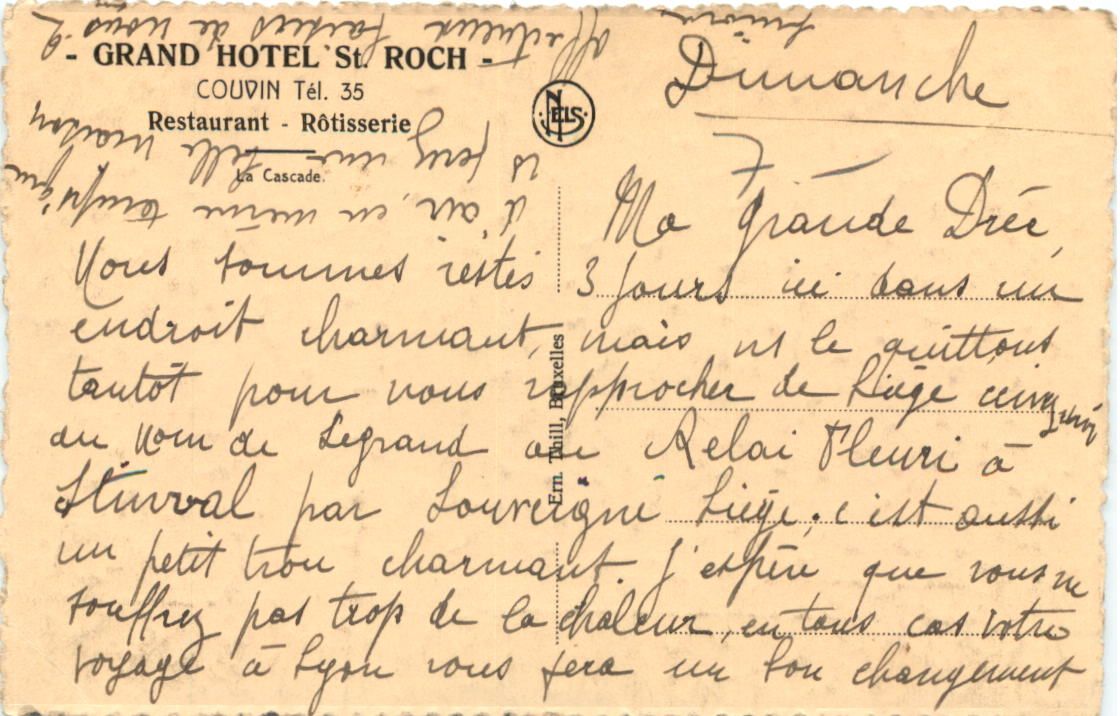 - GRAND HOTEL St. ROCH -
COUVIN Tél. 35
Restaurant - Rôtisserie
La Cascade.
NELS
Ern. Thill, Bruxelles
Dimanche
Ma grande Drée,
Nous sommes restés 3 jours ici dans un
endroit charmant, mais ns le quittons
tantôt pour nous rapprocher de Liège
au nom de Legrand au Relai Fleuri à
par Louveigné Liège, c'est aussi
un petit trou charmant. J'espère que vous ne
souffrez pas trop de la chaleur, en tous cas votre
voyage à Lyon vous fera un bon changement
d'air, en même temps que
vs ferez une belle
affectueux baisers de nous 2